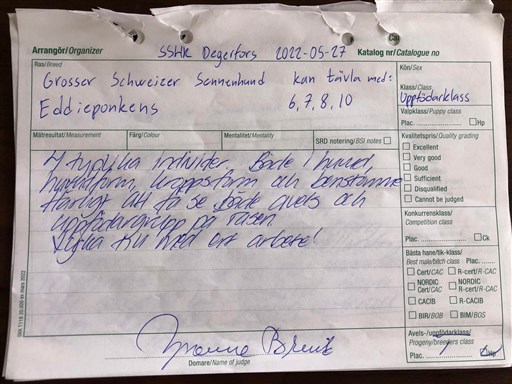 Arrangör/Organizer SSHK Degerfors 2022-05-27 Katalog nr/Catalogue no
Ras/Breed
Grosser Schweizer Sennenhund kan tävla med:
Eddieponkens 6,7,8,10
Kön/Sex
Klass/Class
Uppfödarklass
Valpklass/Puppy class
Plac. Hp
Mätresultat/Measurement Färg/Colour Mentalitet/Mentality SRD notering/BSI notes
4 typlika individer. Både i huvud,
kroppsform och benstomme
Härligt att få se både avels och
uppfödargrupp på rasen.
Lycka till med ert arbete!
Kvalitetspris/Quality grading
Excellent
Very good
Good
Sufficient
Disqualified
Cannot be judged
Konkurrensklass/
Competition class
Plac. Ck
Bästa hane/tik-klass/
Best male/bitch class Plac.
Cert/CAC R-cert/R-CAC
NORDIC Cert/CAC NORDIC R-cert/R-CAC
CACIB R-CACIB
BIR/BOB BIM/BOS
Avels-/uppfödarklass/
Progeny/breeders class
Plac. Hp
Domare/Name of judge